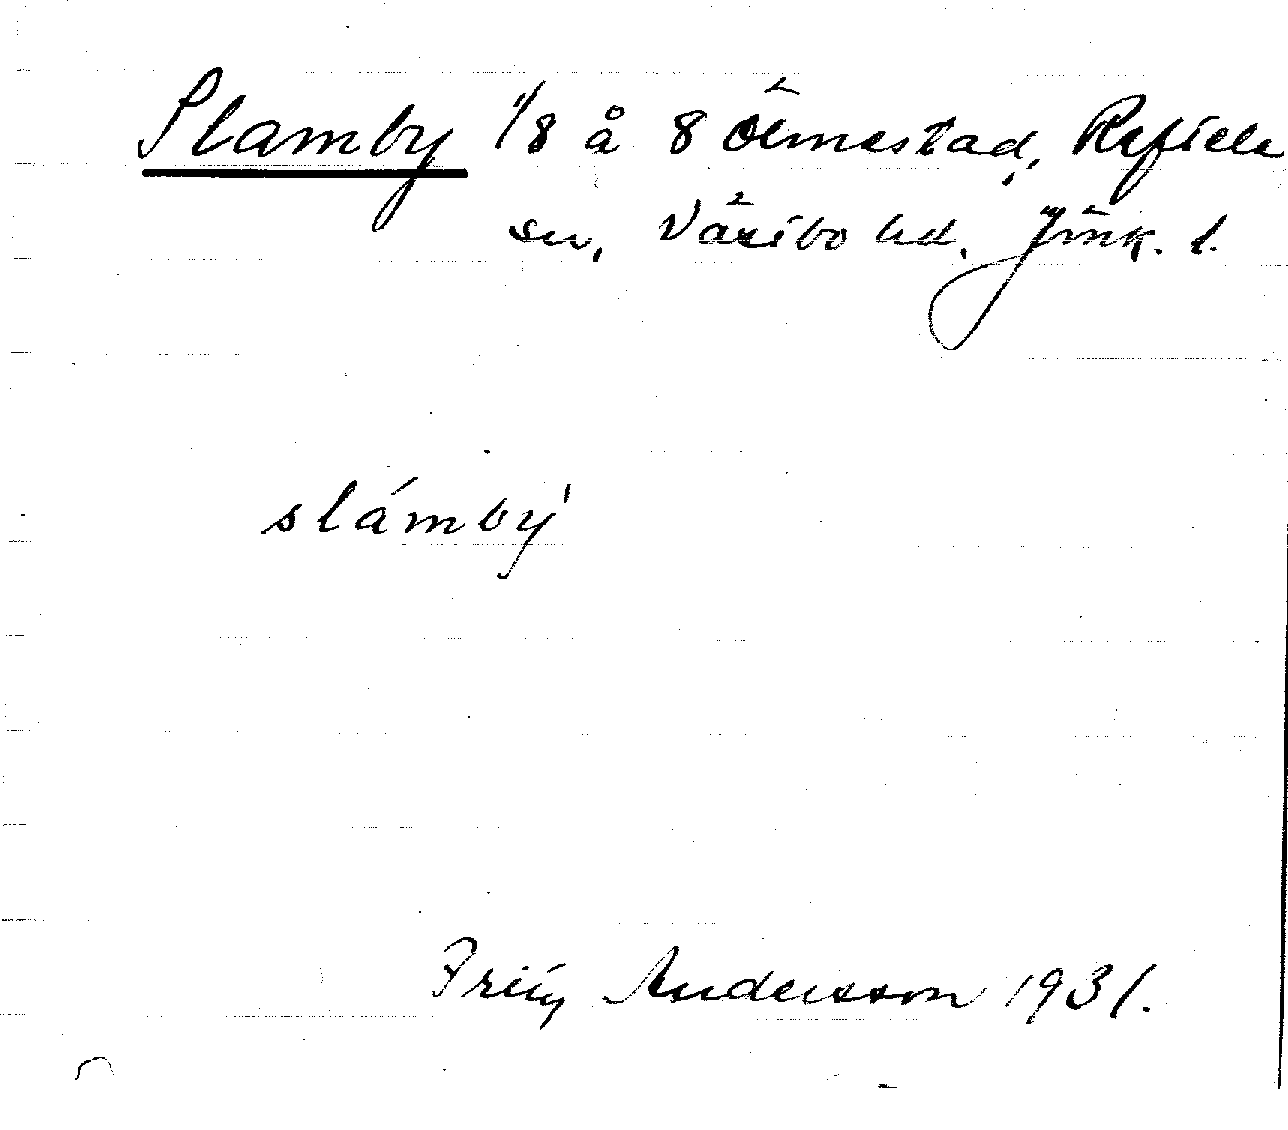 Slamby 1/8 å 8 Ölmestad, Reftele
sn, Västbo hd. Jönk. l.
slámby̍
Fritz Andersson 1931.